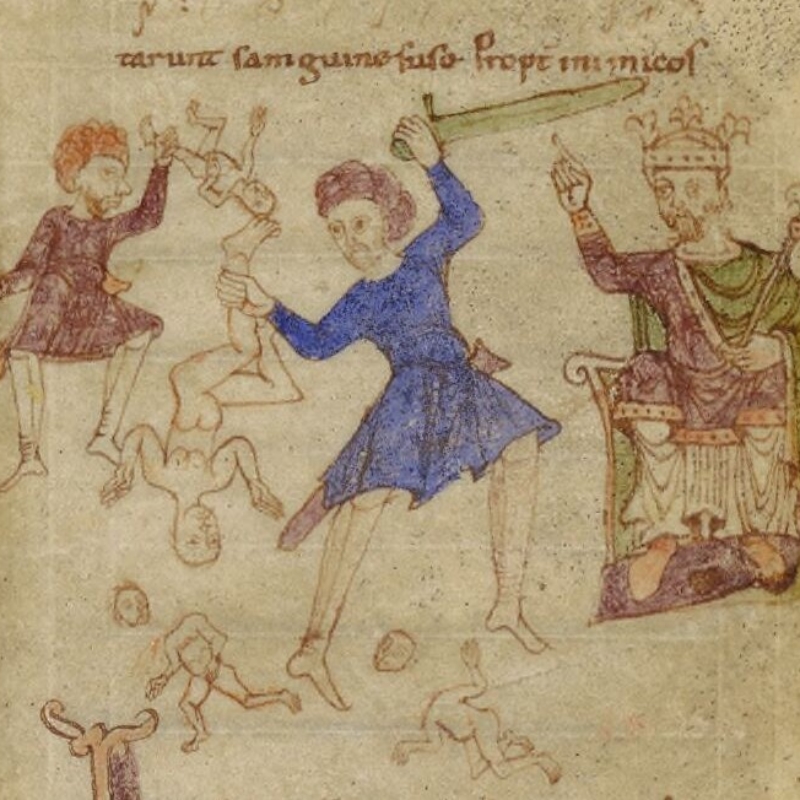 tarunt sanguine fuso Propt inimicos